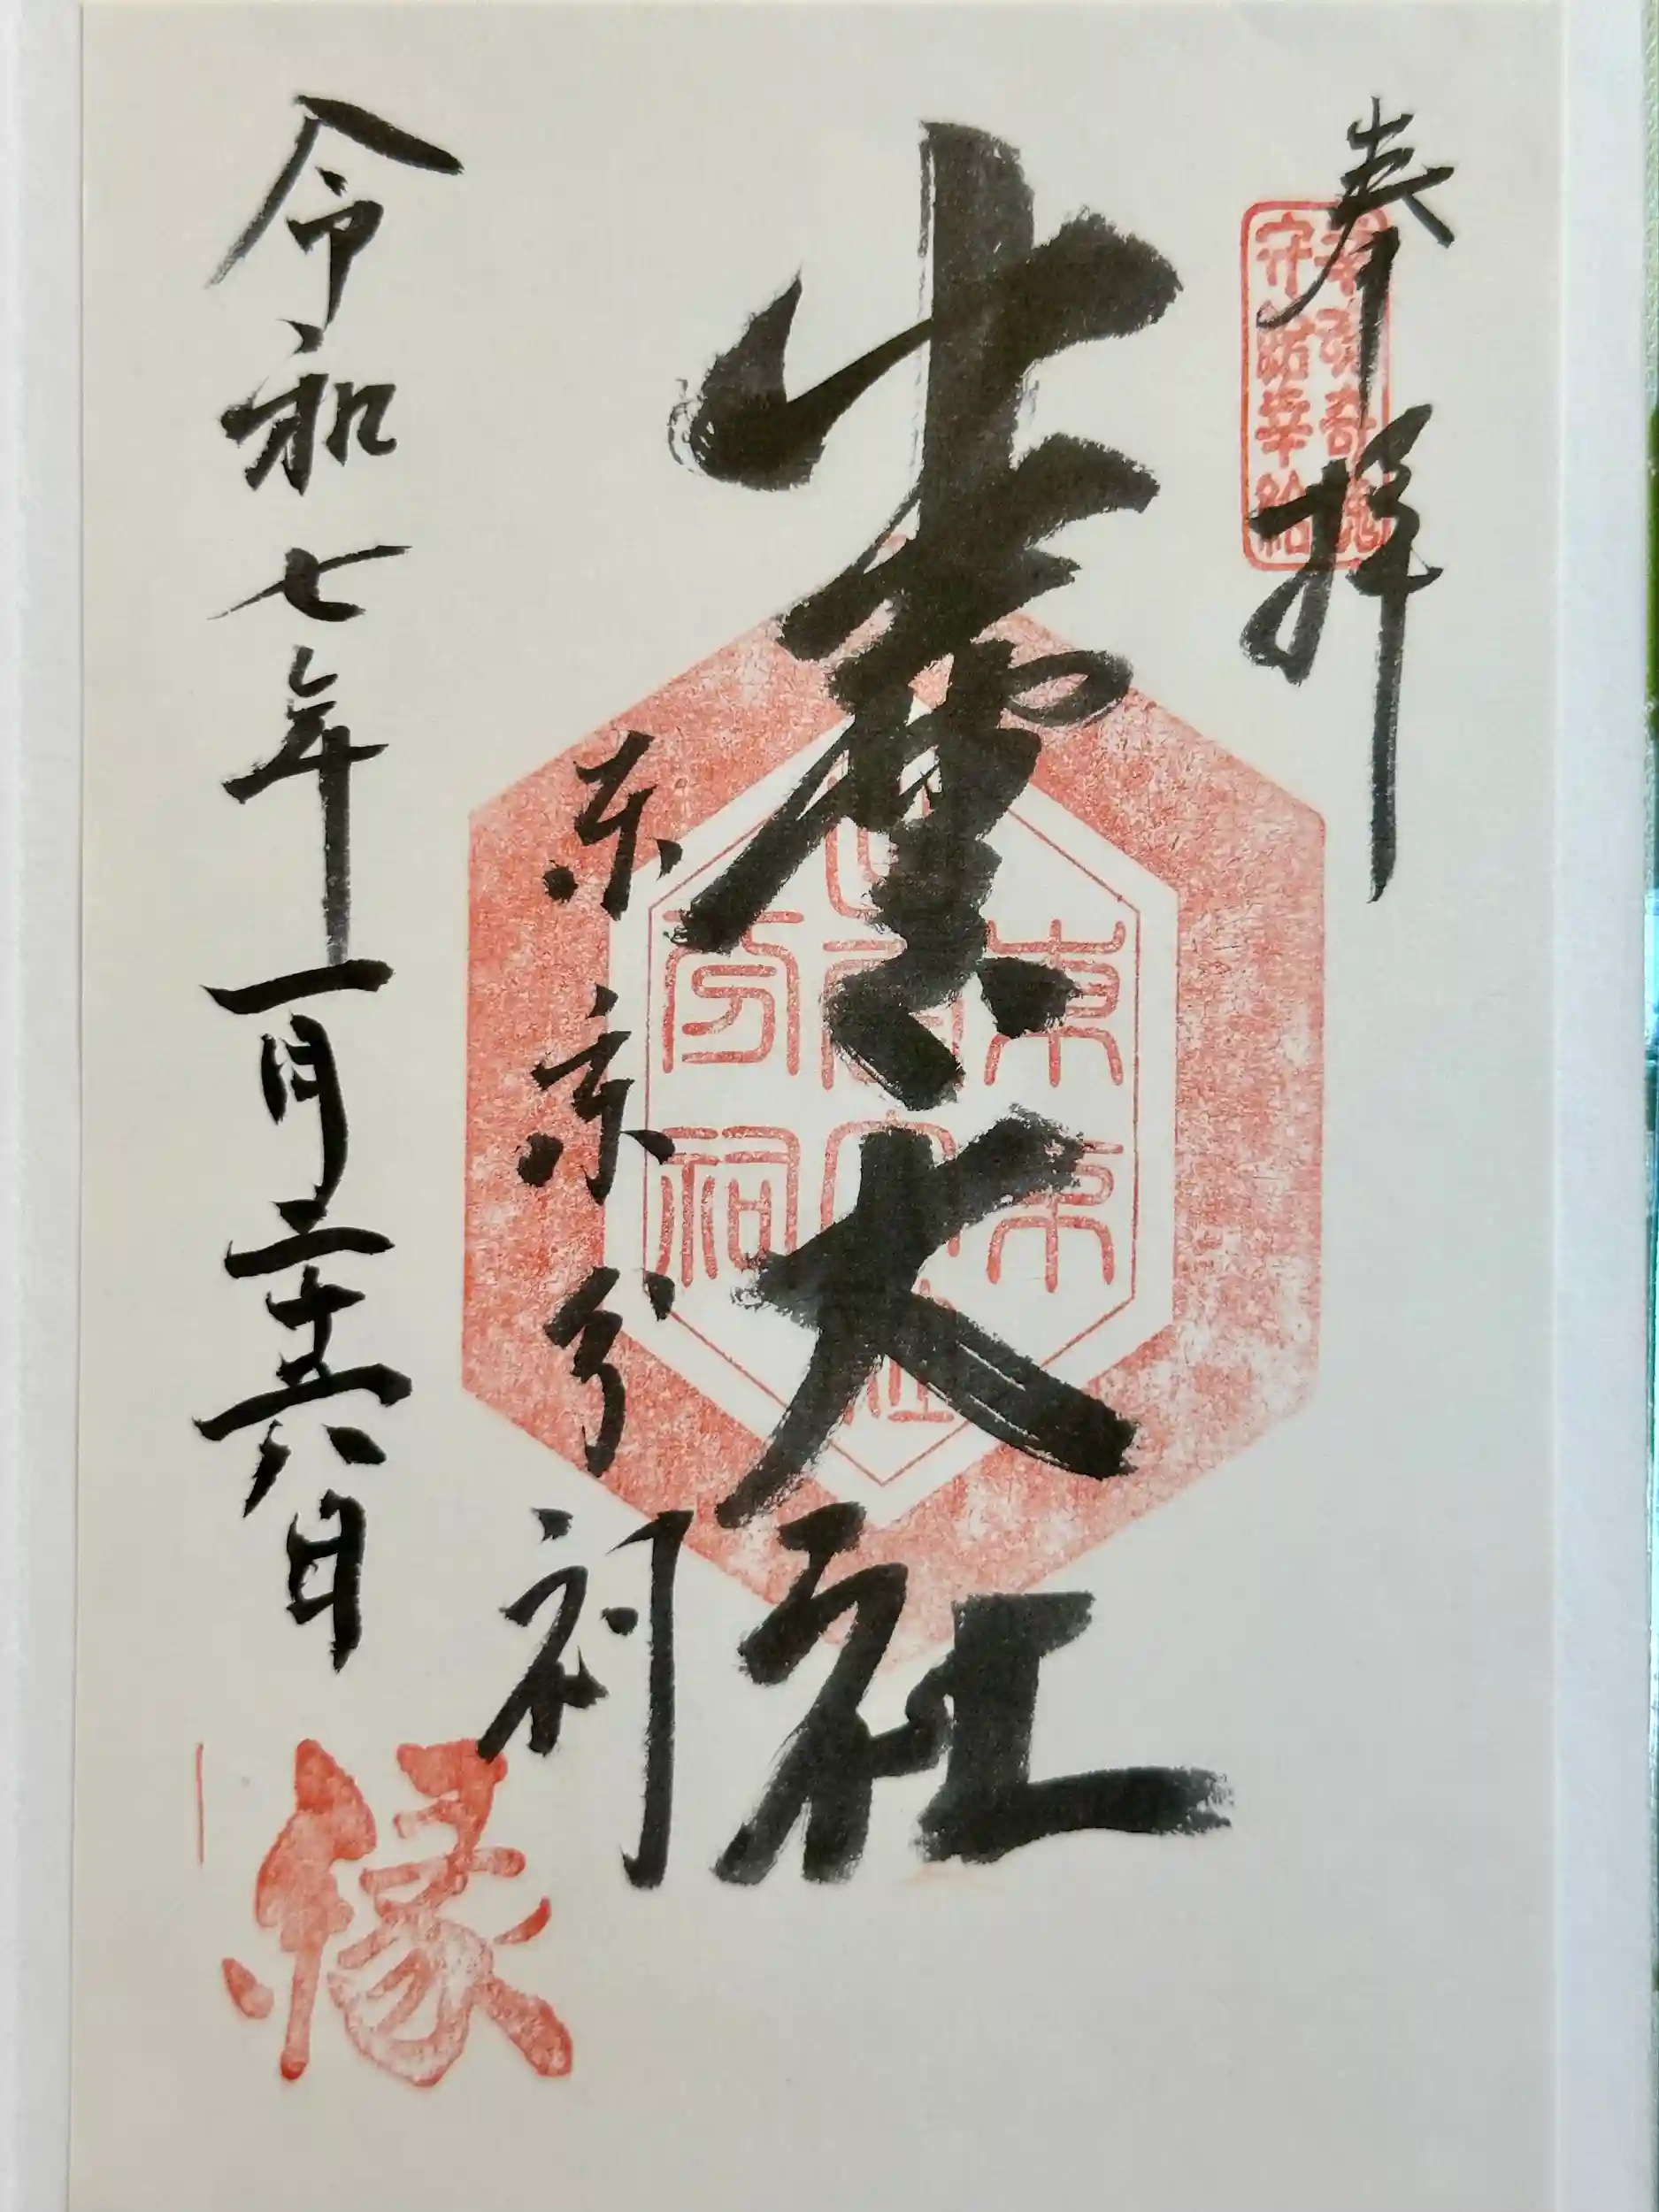 奉拝
幸魂奇魂
守給幸給
出雲大社
東京分祠
東京
出雲大社
分祠
令和七年一月二十六日
縁